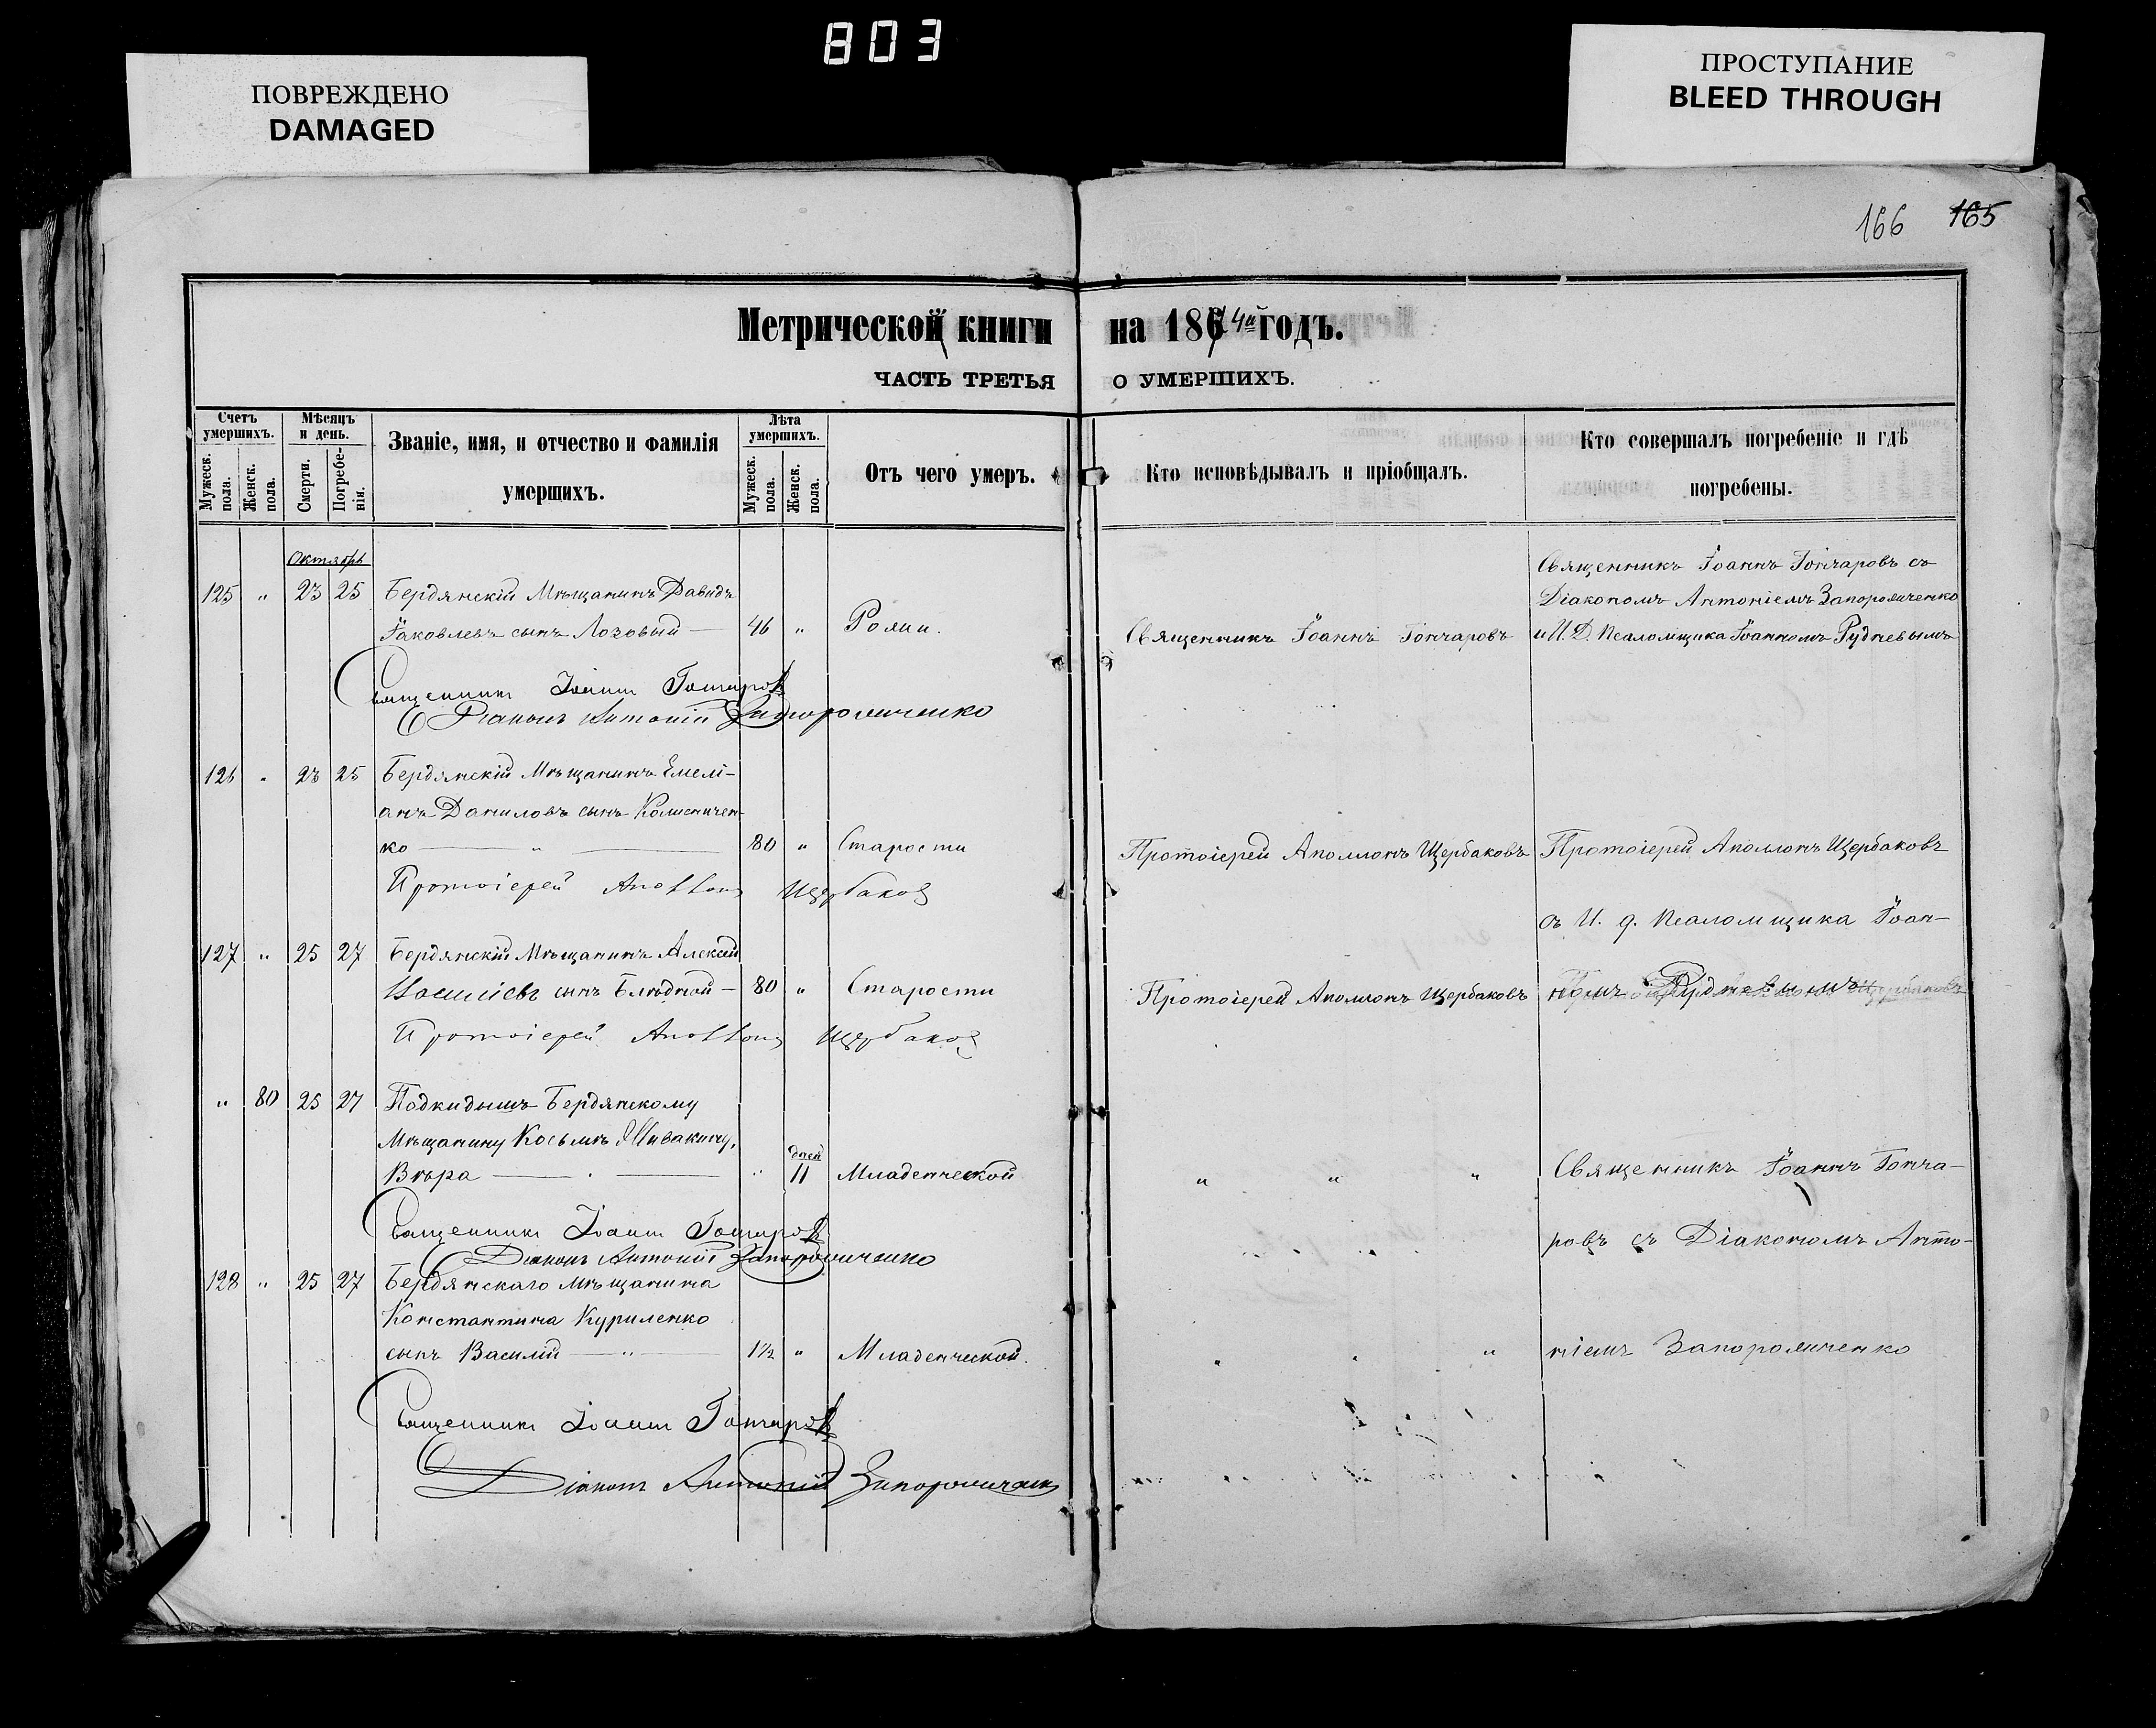 803
ПОВРЕЖДЕНО
DAMAGED
ПРОСТУПАНИЕ
BLEED THROUGH
166 165
Метрической книги на 1874й годъ.
ЧАСТЬ ТРЕТЬЯ О УМЕРШИХЪ.
Счетъ умершихъ.
Мужеск. пола.
Женск. пола.
Мѣсяцъ и день.
Смерти.
Погребенія.
Званіе, имя, и отчество и фамилія
умершихъ.
Лѣта умершихъ.
Мужеск. пола.
Женск. пола.
Отъ чего умеръ.
Кто исповѣдывалъ и пріобщалъ.
Кто совершалъ погребеніе и гдѣ
погребены.
Октябрь
125 " 23 25 Бердянскій Мѣщанинъ Давидъ
Іаковлевъ сынъ Лозовый — 46 " Рожи.
Священникъ Іоаннъ Гончаровъ
Священникъ Іоаннъ Гончаровъ съ
Діакономъ Антоніемъ Запорожченко
и И. Д. Псаломщика Іоанномъ Рудневымъ
Священникъ Іоаннъ Гончаровъ
Діаконъ Антоній Запорожченко
126 " 23 25 Бердянскій Мѣщанинъ Емелі-
анъ Даниловъ сынъ
ко — " — 80 " Старости
Протоіерей Аполлонъ Щербаковъ
Протоіерей Аполлонъ Щербаковъ
Протоіерей Аполлонъ Щербаковъ
съ И. д. Псаломщика Іоан-
127 " 25 27 Бердянскій Мѣщанинъ Алексѣй
сынъ Блѣдной — 80 " Старости
Протоіерей Аполлонъ Щербаковъ
номъ Рудневымъ
Протоіерей Аполлонъ Щербаковъ
" 80 25 27 Подкидышъ Бердянскому
Мѣщанину Косьмѣ Шивакину,
Вѣра — " дней 11 Младенческой
" " "
Священникъ Іоаннъ Гонча-
Священникъ Іоаннъ Гончаровъ
Діаконъ Антоній Запорожченко
ровъ съ Діакономъ Анто-
128 " 25 27 Бердянскаго мѣщанина
Константина Куриленко
сынъ Василій — " — 1½ " Младенческой.
" " "
ніемъ Запорожченко
Священникъ Іоаннъ Гончаровъ
Діаконъ Антоній Запорожченко